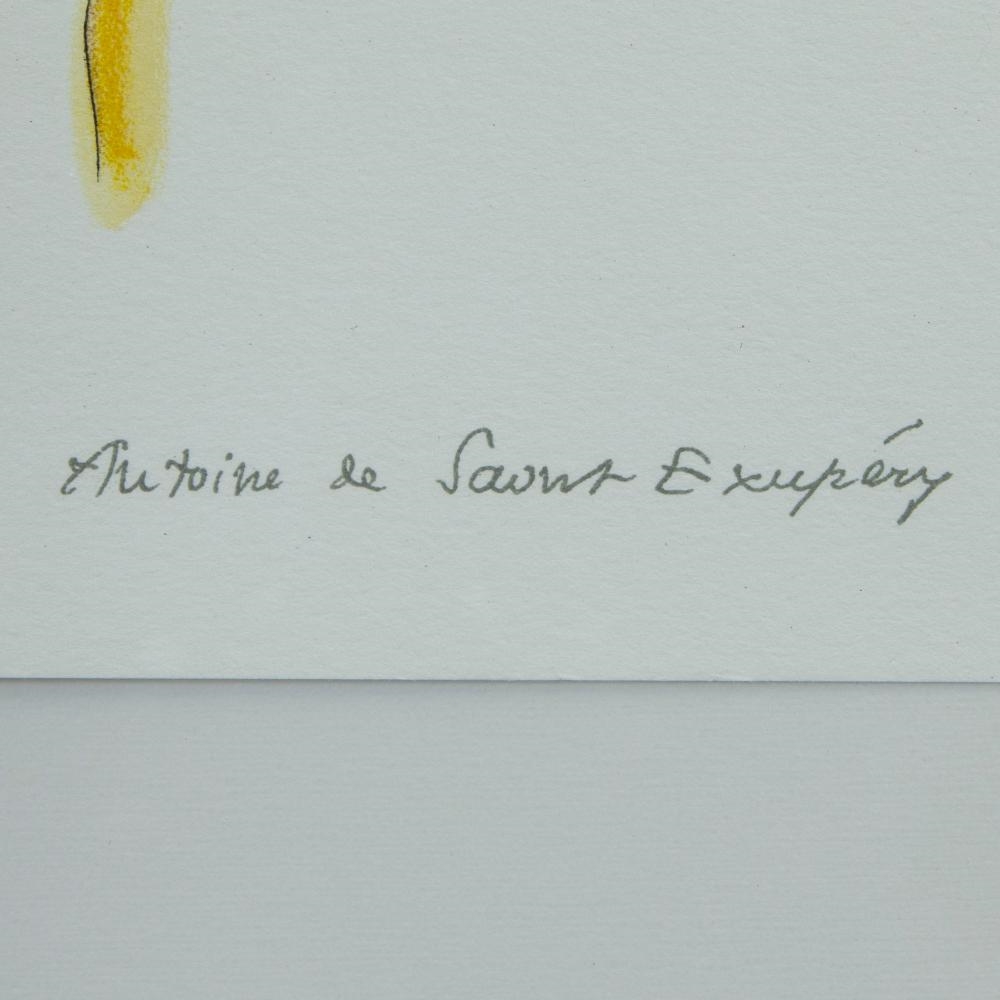 Antoine de Saint Exupéry